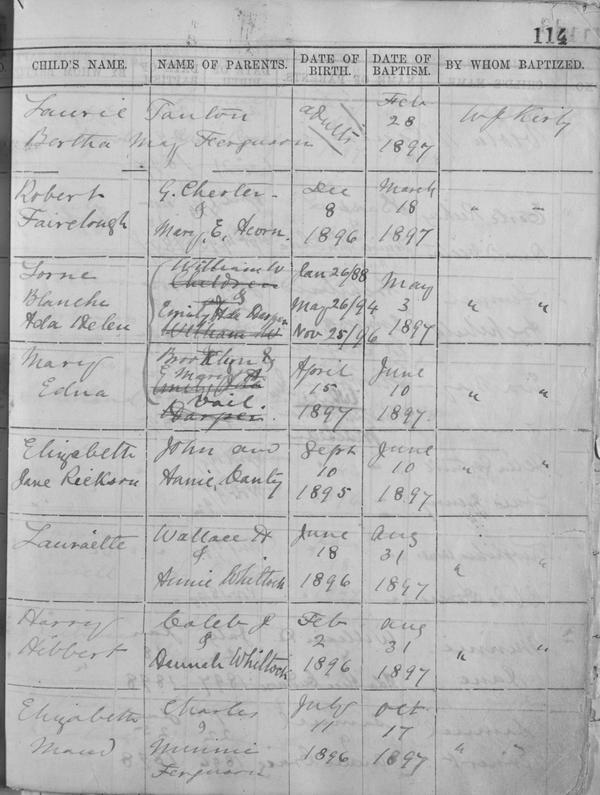 114
CHILD'S NAME. NAME OF PARENTS. DATE OF BIRTH. DATE OF BAPTISM. BY WHOM BAPTIZED.
Laurie Tanton adults Feb 28 1897 W J Kirby
Bertha May Ferguson
Robert G. Chester Dec March
Fairclough & 8 18 " "
Mary E. Acorn. 1896 1897
Lorne William W Jan 26/88 May
Blanche & Emily Ada Harper May 26/94 3 " "
Ada Helen William W Nov 25/96 1897
Mary April June
Edna 15 10 " "
Vail 1897 1897
Harper
Elizabeth John and Sept June
Jane Rickson Annie, Canty 10 10 " "
1895 1897
Lauraette Wallace H June Aug
& 18 31 " "
Annie Whitlock 1896 1897
Harry Caleb J Feb Aug
Hibbert & 2 31 " "
Hannah Whitlock 1896 1897
Elizabeth Charles July Oct
Maud & 11 17 " "
Minnie 1896 1897
Ferguson